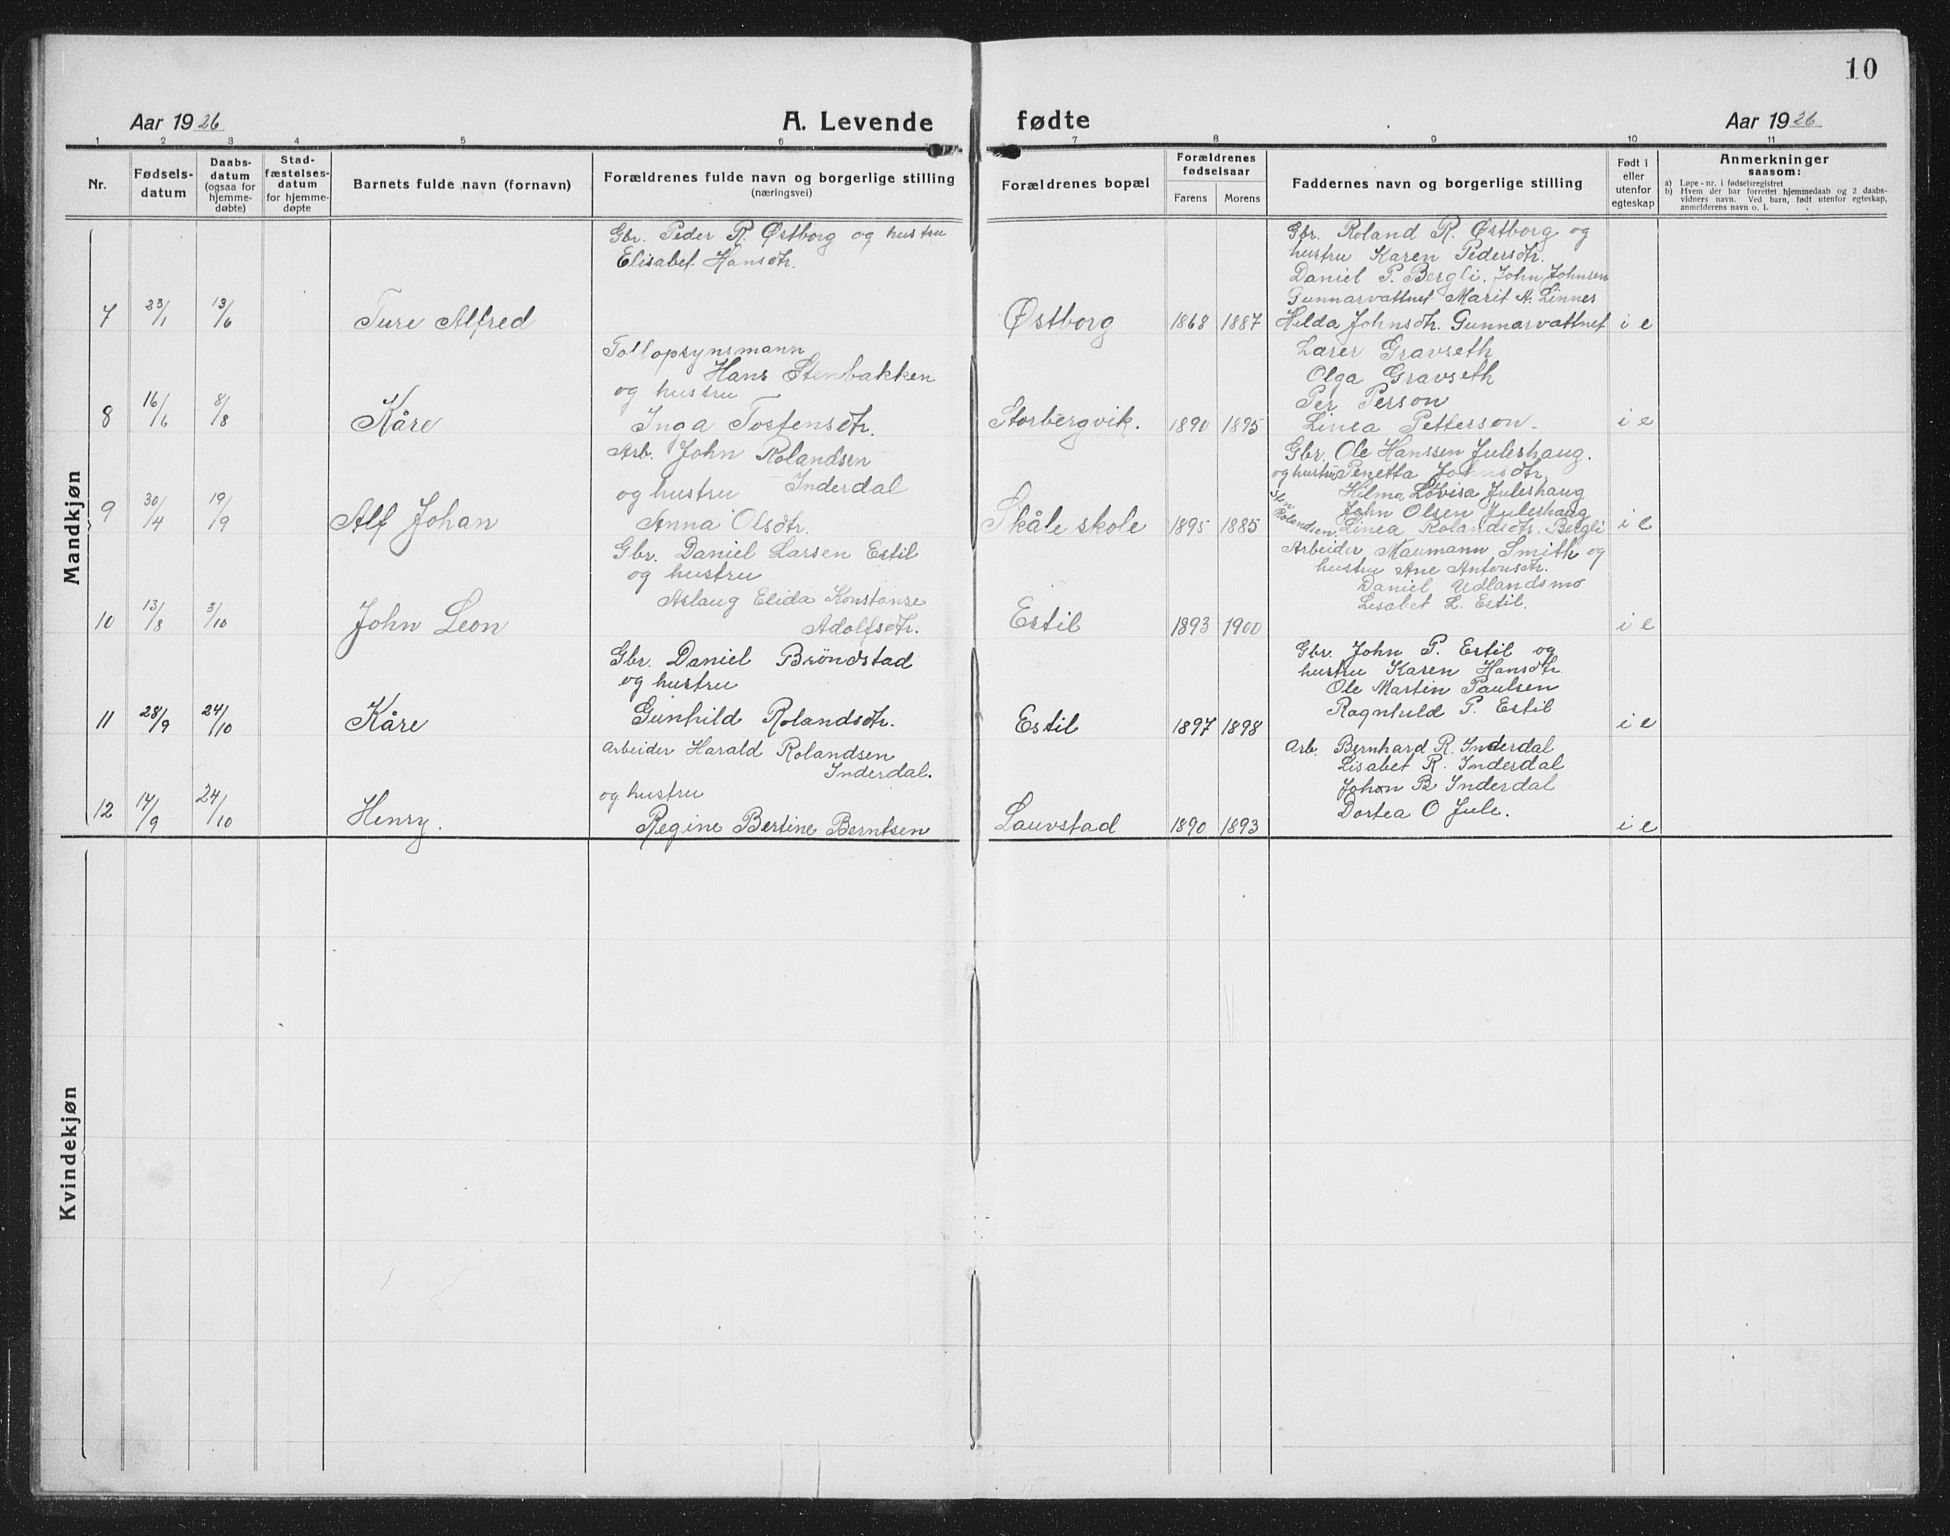 10
Aar 1926
A. Levende fødte
Aar 1926
1 2 3 4 5 6 7 8 9 10 11
Nr.
Fødsels-
datum
Daabs-
datum
(ogsaa for
hjemme-
døbte)
Stad-
fæstelses-
datum
for hjemme-
døpte
Barnets fulde navn (fornavn)
Forældrenes fulde navn og borgerlige stilling
(næringsvei)
Forældrenes bopæl
Forældrenes
fødselsaar
Farens Morens
Faddernes navn og borgerlige stilling
Født i
eller
utenfor
egteskap
Anmerkninger
saasom:
a) Løpe-nr. i fødselsregistret
b) Hvem der har forrettet hjemmedaab og 2 daabs-
vidners navn. Ved barn, født utenfor egteskap,
anmelderens navn o. l.
Mandkjøn
7 23/1 13/6 Ture Alfred
Gbr. Peder R. Østborg og hustru
Elisabet Hansdtr.
Østborg 1868 1887
Gbr. Roland R. Østborg og
hustru Karen Pedersdtr.
Daniel P. Bergli, John Johnsen
Gunnarvattnet Marit A. Linnes
Hilda Johnsdtr. Gunnarvattnet
i e
8 16/6 8/8 Kåre
Tollopsynsmann
Hans Stenbakken
og hustru
Inga Tostensdtr.
Storbergvik. 1890 1895
Larer Gravseth
Olga Gravseth
Per Person
Linea Petterson.
i e
9 30/4 19/9 Alf Johan
Arb. John Rolandsen
og hustru Inderdal
Anna Olsdtr.
Skåle skole 1895 1885
Gbr. Ole Hanssen Juleshaug.
og hustru Penetta Johnsdtr
Hilma Lovisa Juleshaug
John Olsen Juleshaug
Sten Rolandsen. Linea Rolandsdtr. Bergli
i e
10 13/8 3/10 John Leon
Gbr. Daniel Larsen Estil
og hustru
Aslaug Elida Konstanse
Adolfsdtr.
Estil 1893 1900
Arbeider Maumann Smith og
hustru Ane Antonsdtr.
Daniel Udlandsmo
Lisabet L. Estil.
i e
11 28/9 24/10 Kåre
Gbr. Daniel Bröndstad
og hustru
Gunhild Rolandsdtr.
Estil 1897 1898
Gbr. John P. Estil og
hustru Karen Hansdtr.
Ole Martin Paulsen
Ragnhuld P. Estil
i e
12 14/9 24/10 Henry.
Arbeider Harald Rolandsen
Inderdal.
og hustru
Regine Bertine Berntsen
Lauvstad 1890 1893
Arb. Bernhard R. Inderdal
Lisabet R. Inderdal
Johan B Inderdal
Dortea O Jule.
i e
Kvindekjøn